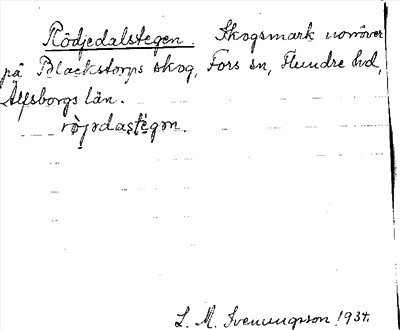 Rödjedalstegen. Skogsmark norröver
på Blackstorps skog, Fors sn, Flundre hd,
Älfsborgs län.
rö̀jədastégən.
L. M. Svenungsson 1934.